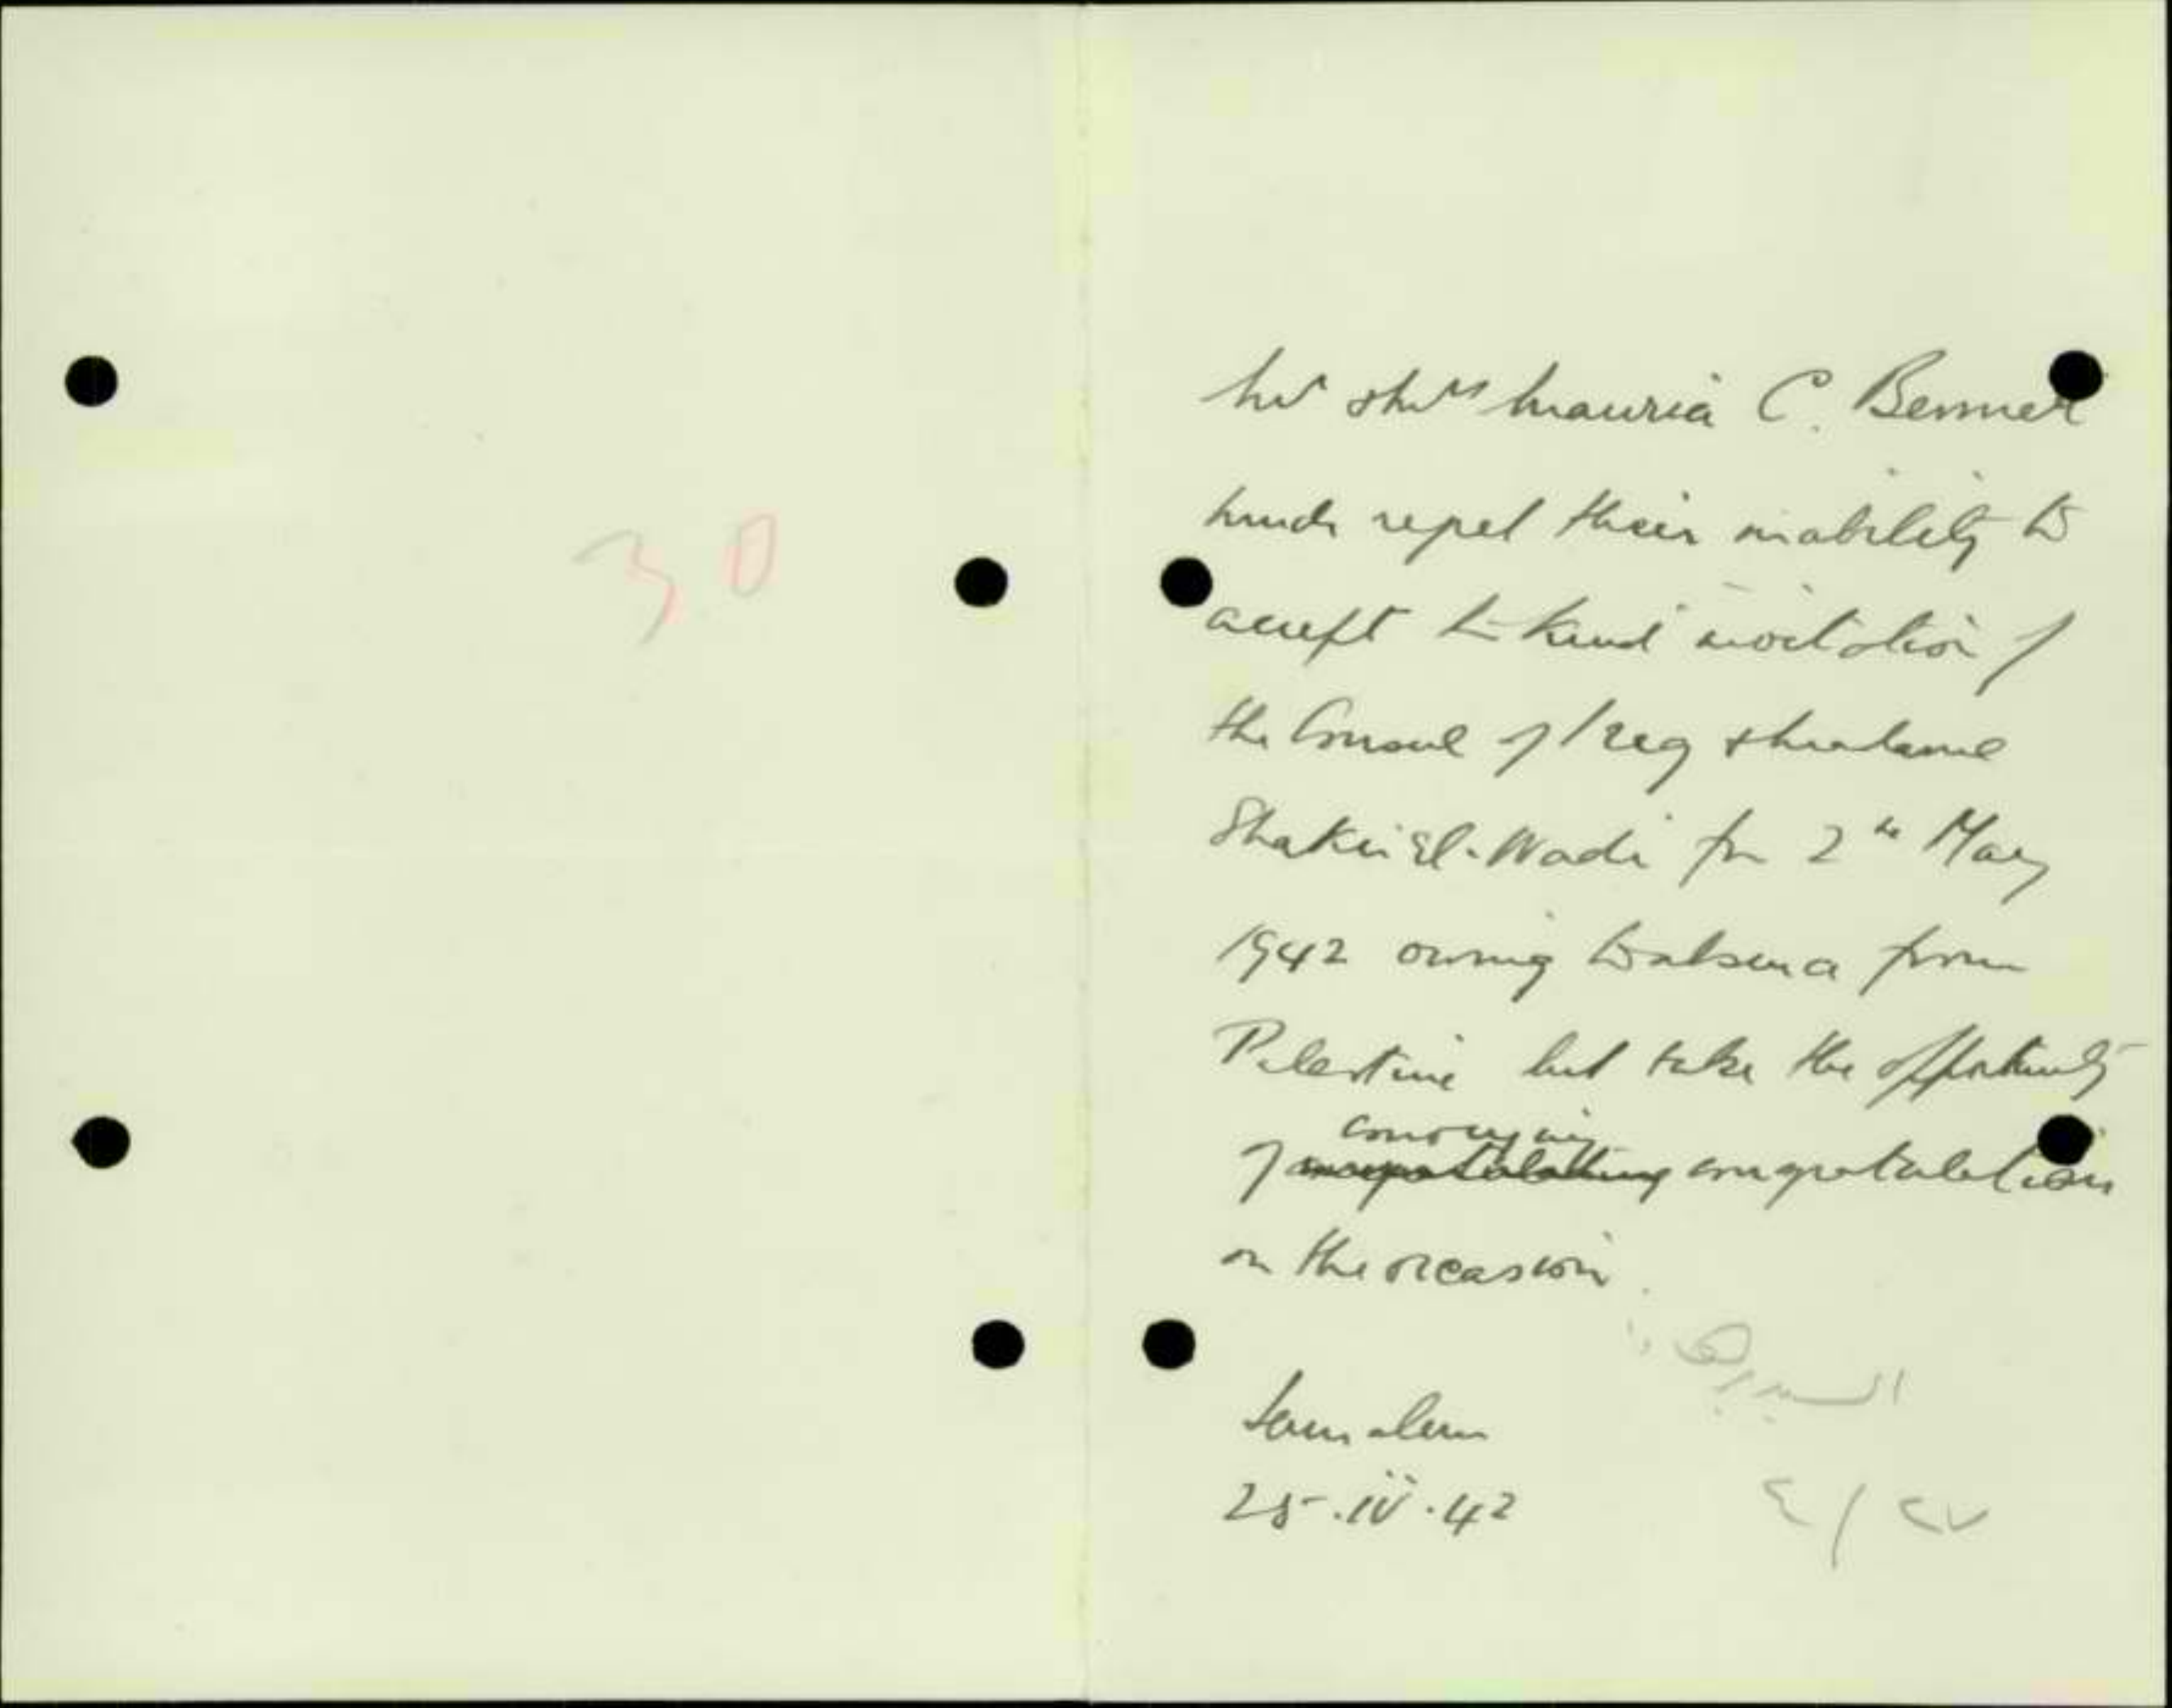 30
Mr & Mrs Maurice C. Bennett
much regret their inability to
accept the kind invitation of
the Consul of Iraq & Madame
Shakir El-Wadi for 2nd May
1942 owing to absence from
Palestine but take the opportunity
of conveying congratulations
on the occasion.
Jerusalem
25.IV.42
٤/٢٧